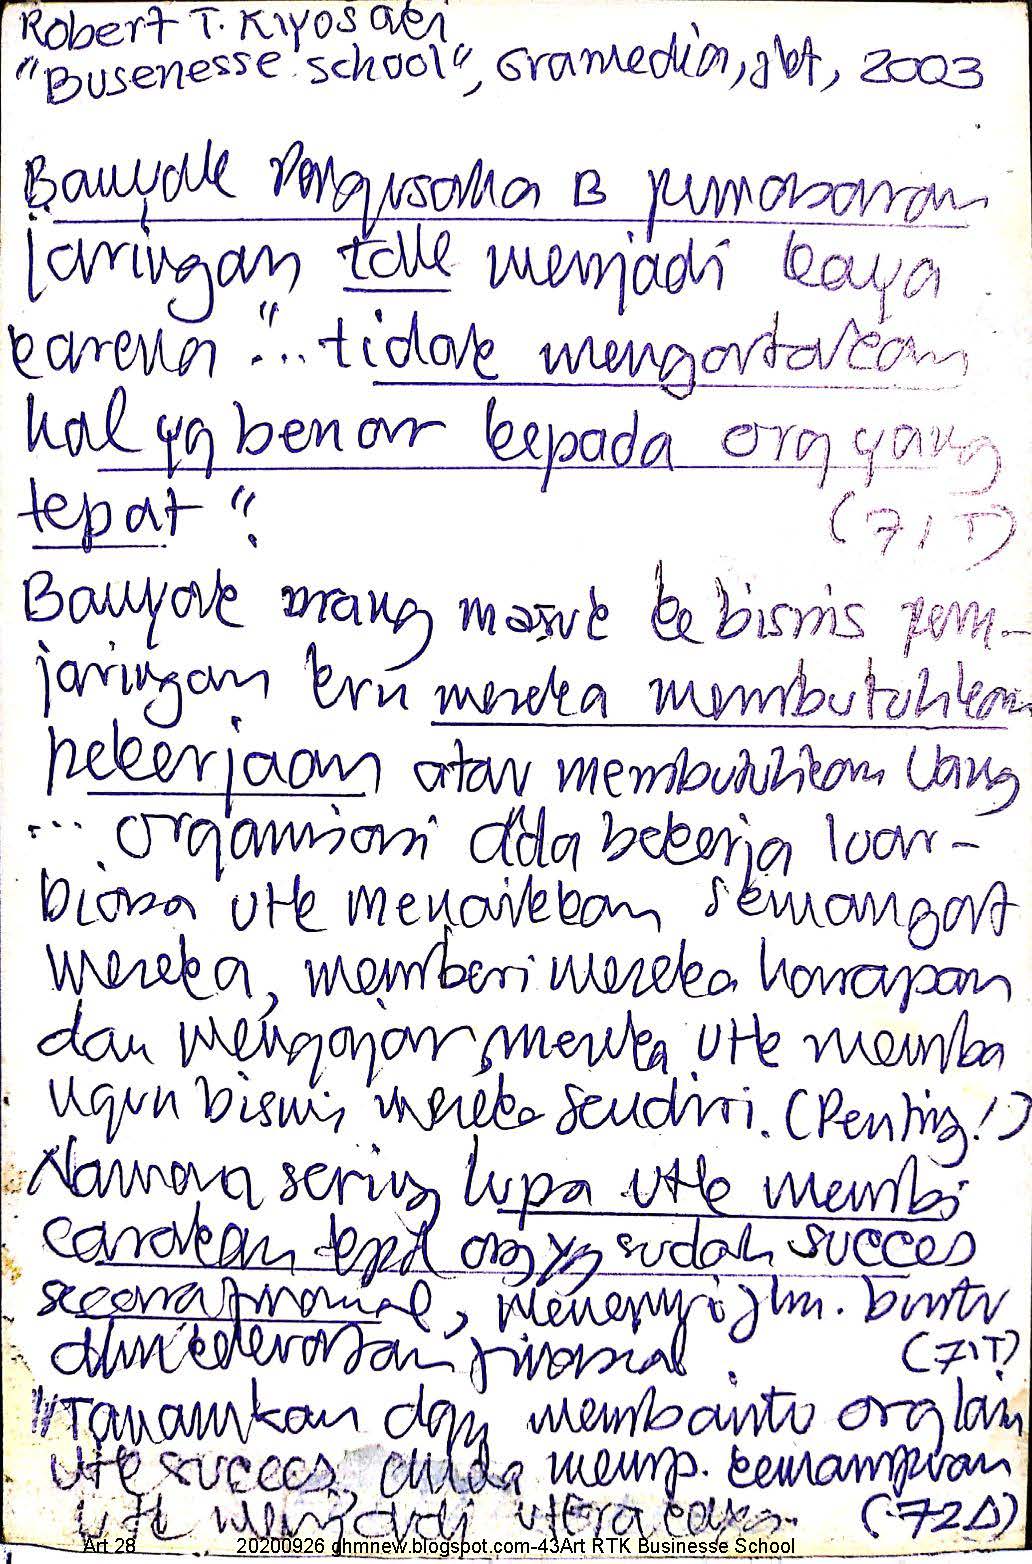 Robert T. Kiyosaki
"Busenesse school", Gramedia, jkt, 2003
Banyak Pengusaha B pemasaran
jaringan tak menjadi kaya
karena "... tidak mengatakan
hal yg benar kepada org yang
tepat".
(71T)
Banyak orang masuk ke bisnis pem-
jaringan krn mereka membutuhkan
pekerjaan atau membutuhkan Uang
... organisasi anda bekerja luar-
biasa utk menaikkan semangat
mereka, memberi mereka harapan
dan mengajar mereka utk memba
ngun bisnis mereka sendiri. (Penting!)
Namun sering lupa utk membi
carakan kpd org yg sudah succes
secara finansial, menemui jln. buntu
dlm finansial.
(71T)
"Tanamkan dan membantu org lain
utk succes, anda memp. kemampuan
utk menjadi
(72A)
Art 28 20200926 ghmnew.blogspot.com-43Art RTK Businesse School